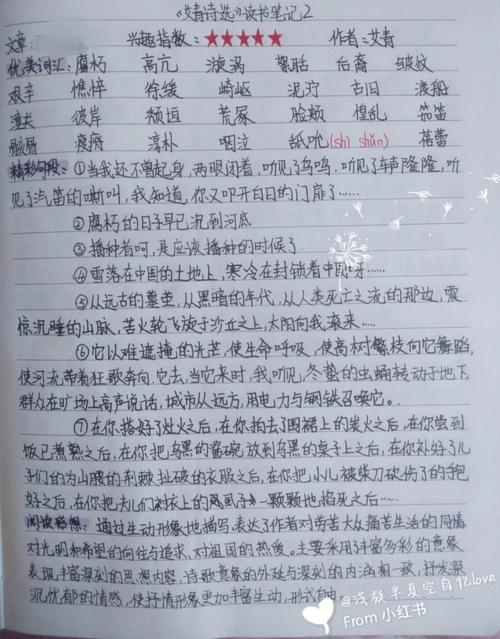 《艾青诗选》读书笔记2
文章: 兴趣指数:★★★★★ 作者:艾青
优美词汇: 腐朽 高亢 漩涡 絮聒 后裔 皱纹
艰辛 憔悴 徐缓 崎岖 泥泞 古旧 渡船
潼关 彼岸 颓垣 荒冢 脸颊 惶乱 笳笛
骸骨 褒 淳朴 咽泣 舐吮(shì shǔn) 蓓蕾
精彩句段: ①当我还不曾起身,两眼闭着,听见了鸟鸣,听见了车声隆隆,听
见了汽笛的嘶叫,我知道,你又叩开白日的门扉了……
②腐朽的日子早已沉到河底
③播种者呵,是应该播种的时候了
④雪落在中国的土地上,寒冷在封锁着中国呀……
⑤从远古的墓茔,从黑暗的年代,从人类死亡之流的那边,震
惊沉睡的山脉,若火轮飞旋于沙丘之上,太阳向我滚来……
⑥它以难遮掩的光芒,使生命呼吸,使高树繁枝向它舞蹈,
使河流带着狂歌奔向它去,当它来时,我听见,冬蛰的虫蛹转动于地下,
群众在旷场上高声说话,城市从远方,用电力与钢铁召唤它。
⑦在你搭好了灶火之后,在你拍去了围裙上的炭火之后,在你尝到
饭已煮熟之后,在你把乌黑的酱碗放到乌黑的桌子上之后,在你补好了儿
子们的为山腰的荆棘扯破的衣服之后,在你把小儿被柴刀砍伤了的手包
好之后,在你把夫儿们衬衣上的虱子一颗颗地掐死之后……
阅读感想: 通过生动形象地描写,表达了作者对劳苦大众痛苦生活的同情
对光明和希望的向往与追求,对祖国的热爱。主要采用了丰富多彩的意象
表现丰富深刻的思想内容,诗歌意象的外延与深刻的内涵相一致,抒发深
沉忧郁的情感,使抒情形象更加丰富生动,形式自由。
@浅凝半夏空自忆love
From 小红书